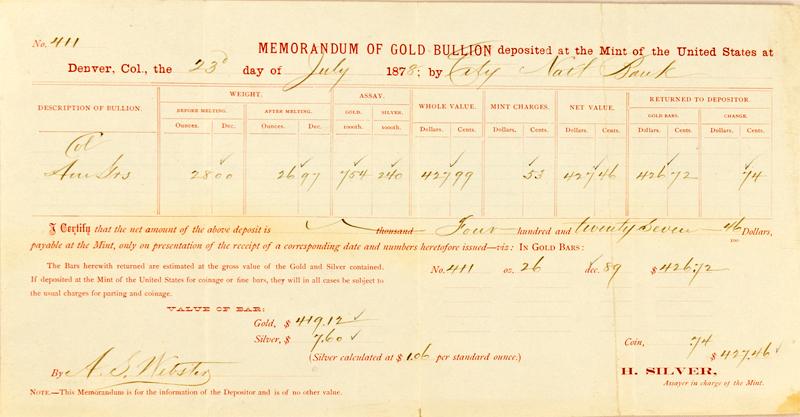 No. 411
MEMORANDUM OF GOLD BULLION deposited at the Mint of the United States at
Denver, Col., the 23d day of July 1878; by City Natl Bank
DESCRIPTION OF BULLION. WEIGHT. ASSAY. WHOLE VALUE. MINT CHARGES. NET VALUE. RETURNED TO DEPOSITOR.
BEFORE MELTING. AFTER MELTING. GOLD. SILVER. GOLD BARS. CHANGE.
Ounces. Dec. Ounces. Dec. 1000th. 1000th. Dollars. Cents. Dollars. Cents. Dollars. Cents. Dollars. Cents. Dollars. Cents.
Col
28 00 26 97 754 240 427 99 53 427 46 426 72 74
I Certify that the net amount of the above deposit is thousand Four hundred and twenty Seven 46/100 Dollars,
payable at the Mint, only on presentation of the receipt of a corresponding date and numbers heretofore issued—viz: IN GOLD BARS:
The Bars herewith returned are estimated at the gross value of the Gold and Silver contained.
If deposited at the Mint of the United States for coinage or fine bars, they will in all cases be subject to
the usual charges for parting and coinage.
No. 411 oz. 26 dec. 89 $426.72
VALUE OF BAR:
Gold, $ 419.12
Silver, $ 7.60
(Silver calculated at $ 1.06 per standard ounce.)
Coin, 74
$ 427.46
By A. S. Webster
H. SILVER,
Assayer in charge of the Mint.
NOTE.—This Memorandum is for the information of the Depositor and is of no other value.